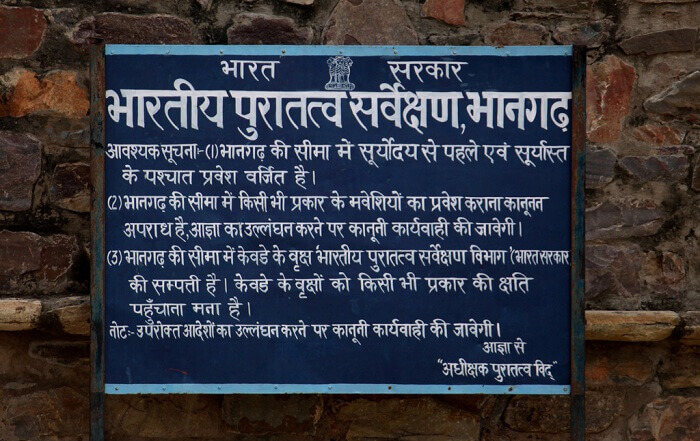 भारत सरकार
भारतीय पुरातत्व सर्वेक्षण, भानगढ़
आवश्यक सूचना:- (1) भानगढ़ की सीमा में सूर्योदय से पहले एवं सूर्यास्त
के पश्चात प्रवेश वर्जित है।
(2) भानगढ़ की सीमा में किसी भी प्रकार के मवेशियों का प्रवेश कराना कानूनन
अपराध है, आज्ञा का उल्लंघन करने पर कानूनी कार्यवाही की जावेगी।
(3) भानगढ़ की सीमा में केवडे के वृक्ष 'भारतीय पुरातत्व सर्वेक्षण विभाग' (भारत सरकार
की सम्पती है। केवडे के वृक्षों को किसी भी प्रकार की क्षति
पहुँचाना मना है।
नोट:- उपरोक्त आदेशों का उल्लंघन करने पर कानूनी कार्यवाही की जावेगी।
आज्ञा से
"अधीक्षक पुरातत्व विद्"